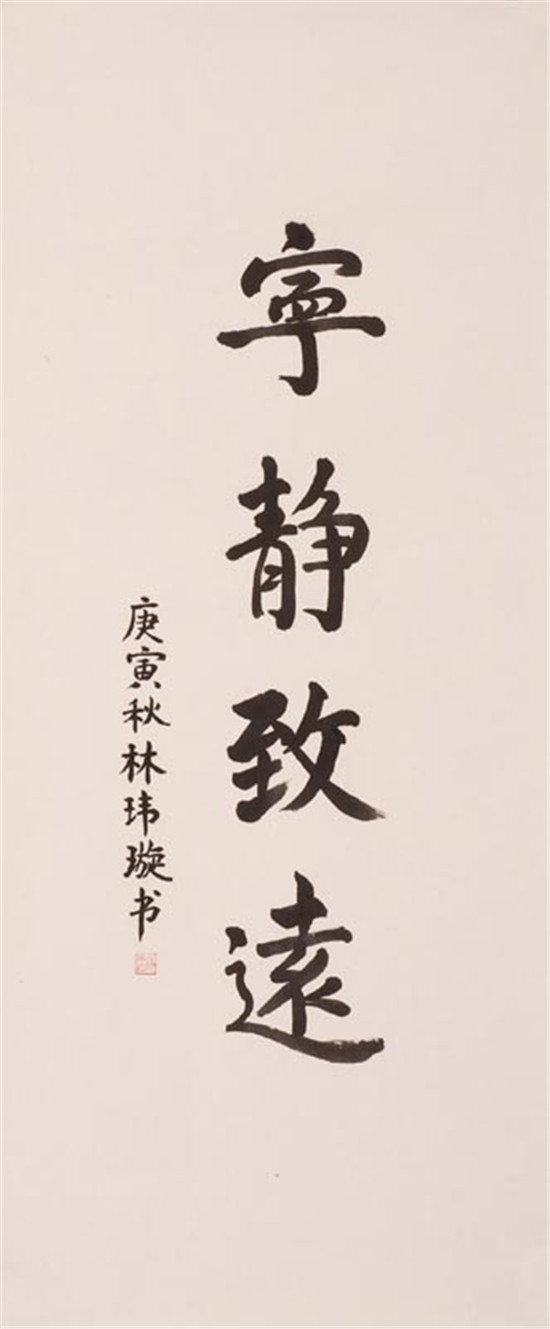 寧静致遠
庚寅秋林玮璇书